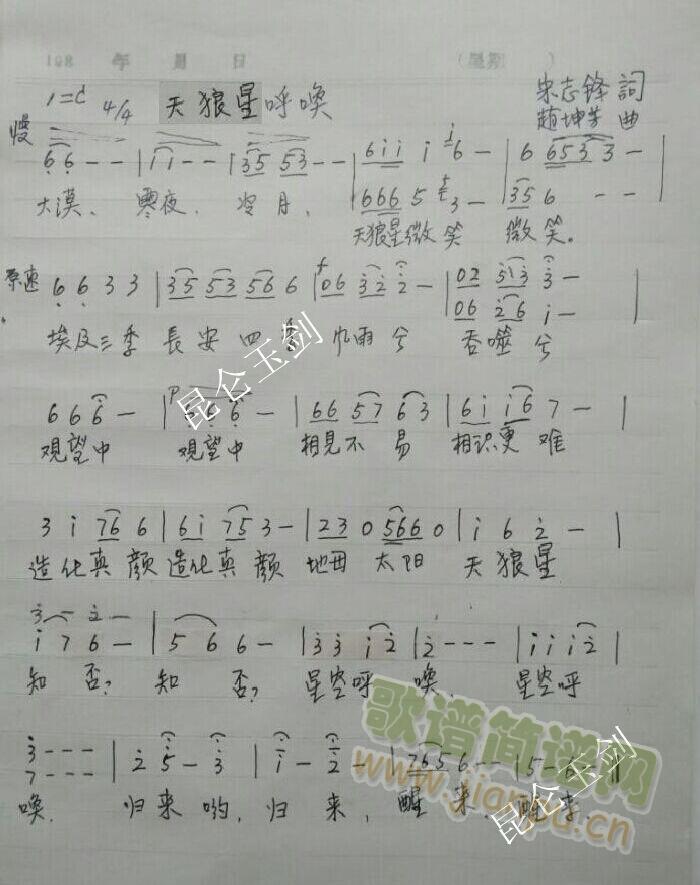 198 年 月 日 (星期 )
1=C 4/4 天狼星呼唤 宋志锋 詞
赵坤芳 曲
慢
6 6 - - | i i - - | 35 53 - - | 6ii i 6 - | 6 6533 -
666 5 3 - | 356 - -
大漠、寒夜、冷月、天狼星微笑 微笑。
原速 6 6 3 3 | 35 53 56 6 | 06 32 2 - | 02 313 3 - |
06 26 i -
埃及三季 長安四季 風雨兮 吞噬兮
6 6 6 - | P 6 6 6 - | 66 57 6 3 | 6i i6 7 - |
观望中 观望中 相見不易 相识更难
3 i 76 6 | 6i 75 3 - | 23 0 566 0 | i 6 2 - |
造化真颜 造化真颜 地毌 太阳 天狼星
3 - 2 -
i 7 6 - | 5 6 6 - | 3 3 i 2 | 2 - - - | i i i 2 |
知否? 知否? 星空呼唤, 星空呼
3 - - - | 2 5 - 3 | i - 2 - | 7656 - - | 5 - 6 - ‖
7 - - -
唤. 归来哟,归来,醒来,醒来.
昆仑玉剑
歌谱简谱网
www.jianpu.cn
昆仑玉剑